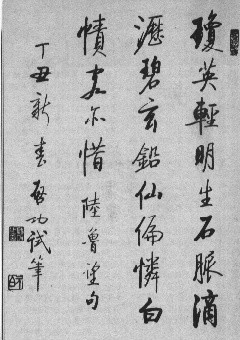 瓊英輕明生石脈滴
瀝碧玄鉛仙偏憐白
幘客亦惜 陸魯望句
丁丑新春啓功試筆